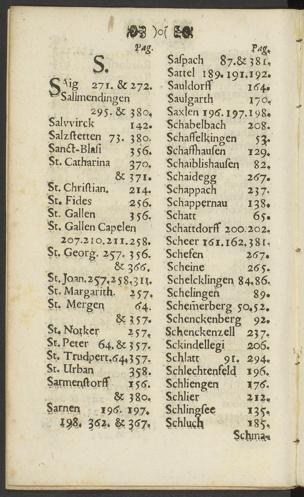 )o(
Pag.
S.
SAig 271. & 272.
Salimendingen
295. & 380.
Salvvirck 142.
Salzstetten 73. 380.
Sanct-Blasi 356.
St. Catharina 370.
& 371.
St. Christian. 214.
St. Fides 256.
St. Gallen 356.
St. Gallen Capelen
207.210.211.258.
St. Georg. 257. 356.
& 366.
St. Joan.257.258.311.
St. Margarith. 257.
St. Mergen 64.
& 357.
St. Notker 257.
St. Peter 64.& 357.
St. Trudpert.64.357.
St. Urban 358.
Sarmenstorff 156.
& 380.
Sarnen 196. 197.
198. 362. & 367.
Pag.
Saspach 87.& 381.
Sattel 189.191.192.
Sauldorff 164.
Saulgarth 170.
Saxlen 196.197.198.
Schabelbach 208.
Schaffelkingen 53.
Schaffhausen 129.
Schaiblishausen 82.
Schaidegg 267.
Schappach 237.
Schappernau 138.
Schatt 65.
Schattdorff 200.202.
Scheer 161.162.381.
Schefen 267.
Scheine 265.
Schelcklingen 84.86.
Schelingen 89.
Schemerberg 50.52.
Schenckenberg 92.
Schenckenzell 237.
Sckindellegi 206.
Schlatt 91. 294.
Schlechtenfeld 196.
Schliengen 176.
Schlier 212.
Schlingsee 135.
Schluch 185.
Schma-